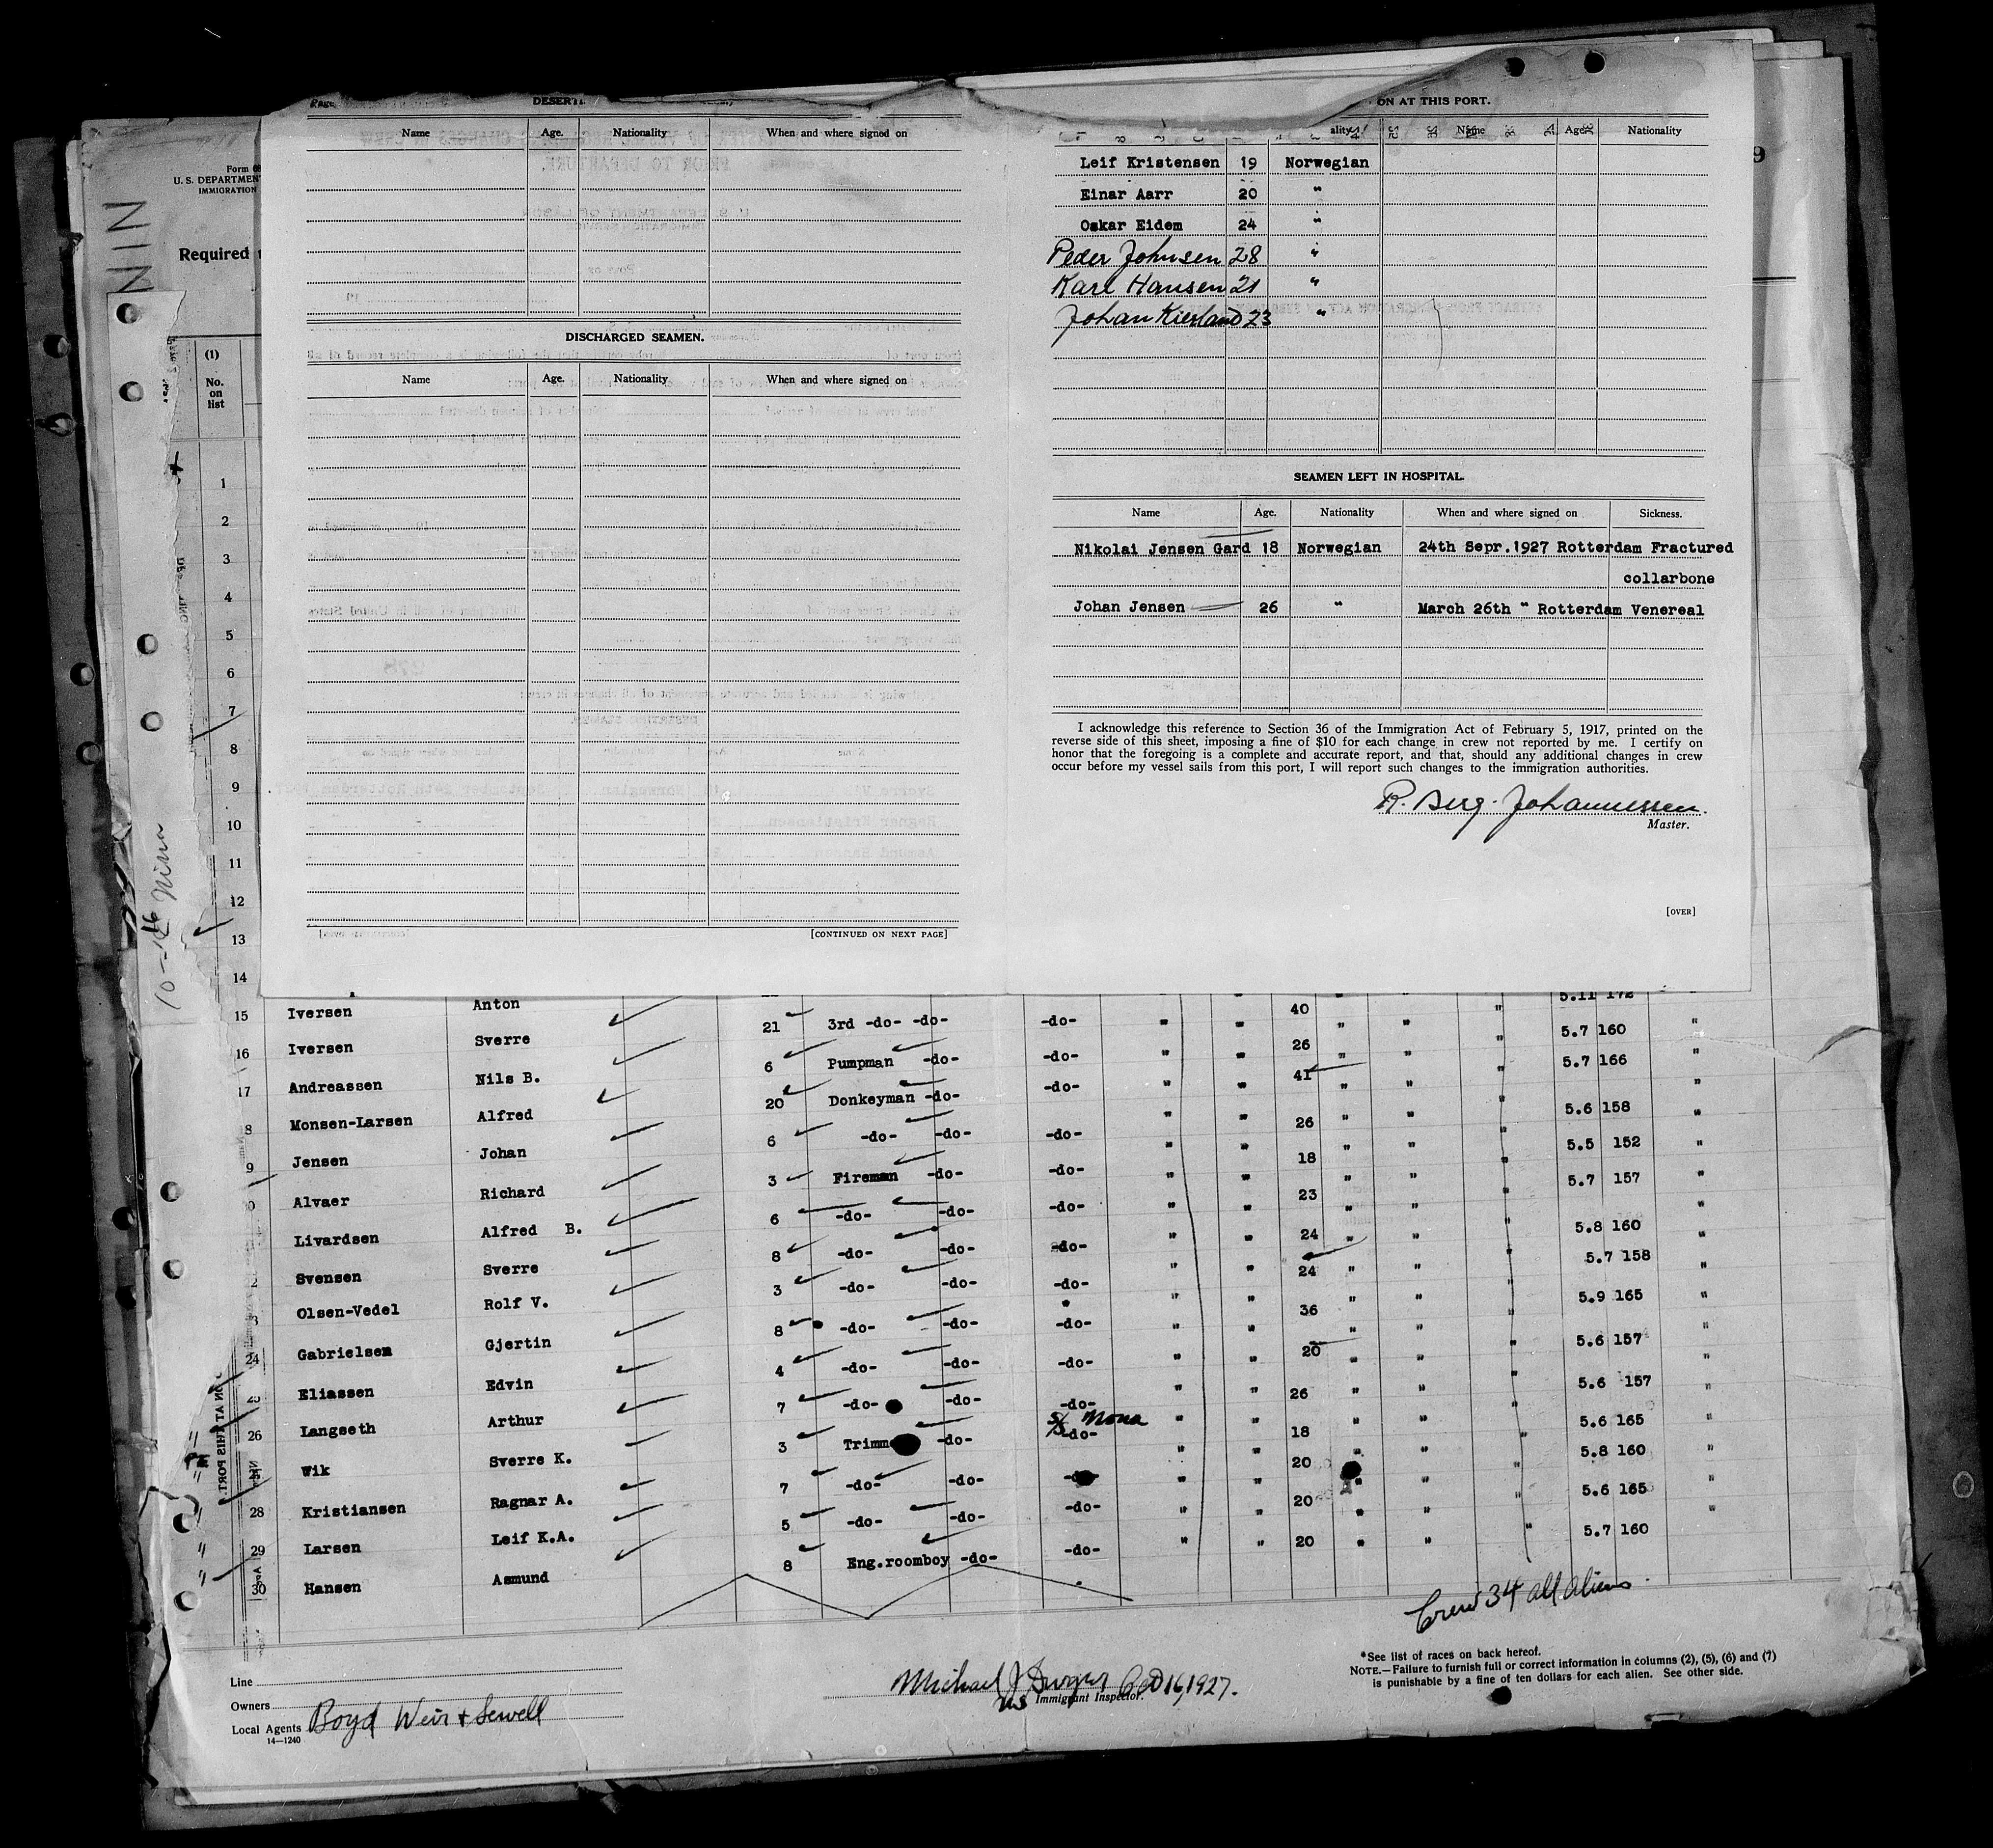 Form
U. S. DEPARTMEN
IMMIGRATION
NIN
Required
(1)
No.
on
list
DESERTI
Name Age. Nationality When and where signed on
DISCHARGED SEAMEN.
Name Age. Nationality When and where signed on
[CONTINUED ON NEXT PAGE]
ON AT THIS PORT.
ality Name Age Nationality
Leif Kristensen 19 Norwegian
Einar Aarr 20 "
Oskar Eidem 24 "
Peder Johnsen 28 "
Karl Hansen 21 "
Johan Kierland 23 "
SEAMEN LEFT IN HOSPITAL.
Name Age. Nationality When and where signed on Sickness.
Nikolai Jensen Gard 18 Norwegian 24th Sepr.1927 Rotterdam Fractured
collarbone
Johan Jensen 26 " March 26th " Rotterdam Venereal
I acknowledge this reference to Section 36 of the Immigration Act of February 5, 1917, printed on the
reverse side of this sheet, imposing a fine of $10 for each change in crew not reported by me. I certify on
honor that the foregoing is a complete and accurate report, and that, should any additional changes in crew
occur before my vessel sails from this port, I will report such changes to the immigration authorities.
R. Berg. Johannessen.
Master.
[OVER]
1
2
3
4
5
6
7
8
9
10
11
12
13
14
10-16 Nina
15 Iversen Anton 21 3rd -do- -do- -do- " " 40 " " " 5.11 172 "
16 Iversen Sverre 6 Pumpman -do- -do- " " 26 " " " 5.7 160 "
17 Andreassen Nils B. 20 Donkeyman -do- -do- " " 41 " " " 5.7 166 "
8 Monsen-Larsen Alfred 6 -do- -do- -do- " " 26 " " " 5.6 158 "
9 Jensen Johan 3 Fireman -do- -do- " " 18 " " " 5.5 152 "
0 Alvaer Richard 6 -do- -do- -do- " " 23 " " " 5.7 157 "
Livardsen Alfred B. 8 -do- -do- -do- " " 24 " " " 5.8 160 "
2 Svensen Sverre 3 -do- -do- -do- " " 24 " " " 5.7 158 "
3 Olsen-Vedel Rolf V. 8 -do- -do- -do- " " 36 " " " 5.9 165 "
24 Gabrielsen Gjertin 4 -do- -do- -do- " " 20 " " " 5.6 157 "
25 Eliassen Edvin 7 -do- -do- -do- " " 26 " " " 5.6 157 "
26 Langseth Arthur 3 Trimm -do- S/S Mona -do- " " 18 " " " 5.6 165 "
Wik Sverre K. 7 -do- -do- " " 20 " " " 5.8 160 "
28 Kristiansen Ragnar A. 5 -do- -do- -do- " " 20 " " " 5.6 165 "
29 Larsen Leif K.A. 8 Eng.roomboy -do- -do- " " 20 " " " 5.7 160
30 Hansen Asmund
Crew 34 all aliens
Line
Owners
Local Agents Boyd Weir & Sewell
14—1240
Michael J. Dwyer Oct 16, 1927.
US Immigrant Inspector.
*See list of races on back hereof.
NOTE.—Failure to furnish full or correct information in columns (2), (5), (6) and (7)
is punishable by a fine of ten dollars for each alien. See other side.